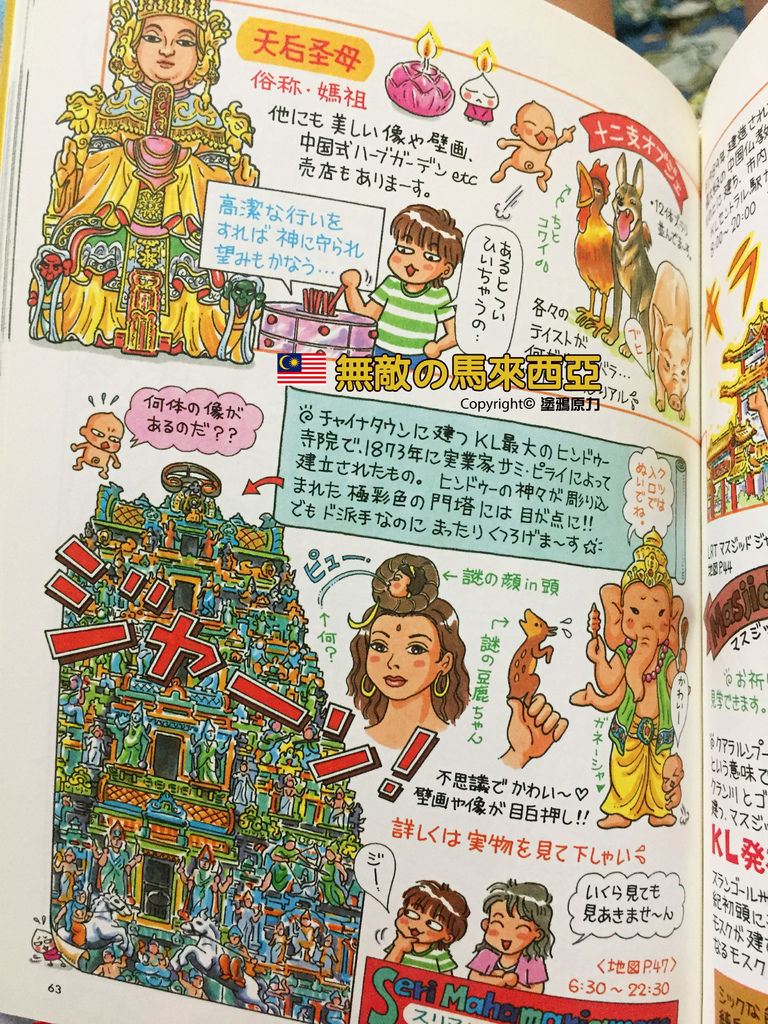 天后圣母
俗称・媽祖
他にも美しい像や壁画、
中国式ハーブガーデンetc
売店もありまーす。
高潔な行いを
すれば神に守られ
望みもかなう…
あるとつい
ひいちゃうの…
十二支オブジェ
ちと
コワイ
各々の
テイストが
無敵の馬來西亞
Copyright© 塗鴉原力
何体の像が
あるのだ??
チャイナタウンに建つKL最大のヒンドゥー
寺院で、1873年に実業家サミ・ピライによって
建立されたもの。ヒンドゥーの神々が彫り込
まれた極彩色の門塔には目が点に!!
でもド派手なのにまったりくつろげま〜す
クツは
入口で
ぬいで
ね。
ジャジャーーン!
ピュー
←謎の顔in頭
←何?
謎の豆鹿ちゃん
かわいー
ガネーシャ♥
不思議でかわい〜♡
壁画や像が目白押し!!
詳しくは実物を見て下しゃい
ジー!
いくら見ても
見あきませ〜ん
〈地図P47〉
6:30〜22:30
Seri Mahamariamman
63
中国仏教
に建ち、市内
セントラル駅か
20:00
LRTマスジッド
地図P44
Masjid
マスジッ
お祈り
見学できます。
クアラルンプー
という意味で
クラン川とゴ
建つ、マスジッ
KL発
スランゴール
紀初頭に
モスクが建
なるモスク
シックな